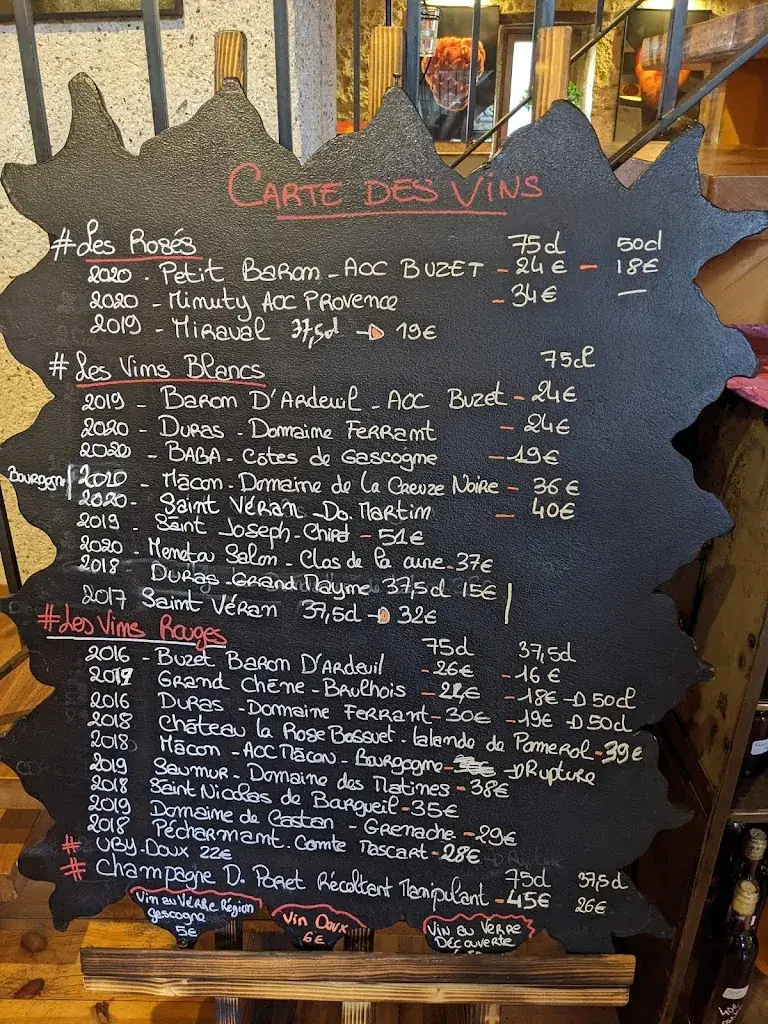 CARTE DES VINS
#Les Rosés 75cl 50cl
2020 - Petit Baron - AOC BUZET - 24€ - 18€
2020 - Minuty AOC Provence - 34€ —
2019 - Miraval 37,5cl → 19€
#Les Vins Blancs 75cl
2019 - Baron D'Ardeuil - AOC Buzet - 24€
2020 - Duras - Domaine Ferrant - 24€
2020 - BABA - Côtes de Gascogne - 19€
Bourgogne 2020 - Mâcon - Domaine de la Creuze Noire - 36€
2020 - Saint Véran - Do. Martin - 40€
2019 - Saint Joseph - - 51€
2020 - Menetou Salon - Clos de la cure - 37€
2018 Duras - Grand Mayne 37,5cl 15€
2017 Saint Véran 37,5cl → 32€
#Les Vins Rouges 75cl 37,5cl
2016 - Buzet Baron D'Ardeuil - 26€ - 16€
Grand Chêne - Brulhois - - 18€ → 50cl
2016 Duras - Domaine Ferrant - 30€ - 19€ → 50cl
2018 Château la Rose Bossuet - Lalande de Pomerol - 39€
2018 Mâcon - AOC Mâcon - Bourgogne - → Rupture
2019 Saumur - Domaine des Matines - 38€
2018 Saint Nicolas de Bourgueil - 35€
2019 Domaine de Castan - Grenache - 29€
2018 Pécharmant. Comte Mascart - 28€
# UBY. Doux 22€
# Champagne D. Poret Récoltant Manipulant 75cl - 45€ 37,5cl 26€
Vin au Verre Région
gascogne
5€
Vin Doux
6€
Vin au Verre
Découverte